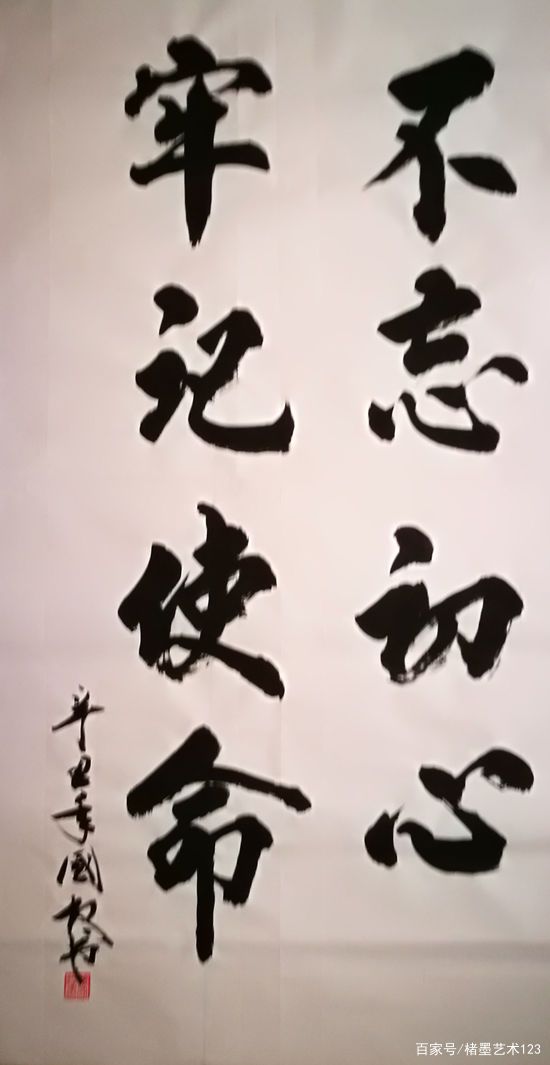 不忘初心
牢记使命
辛丑年國
百家号/楮墨艺术123